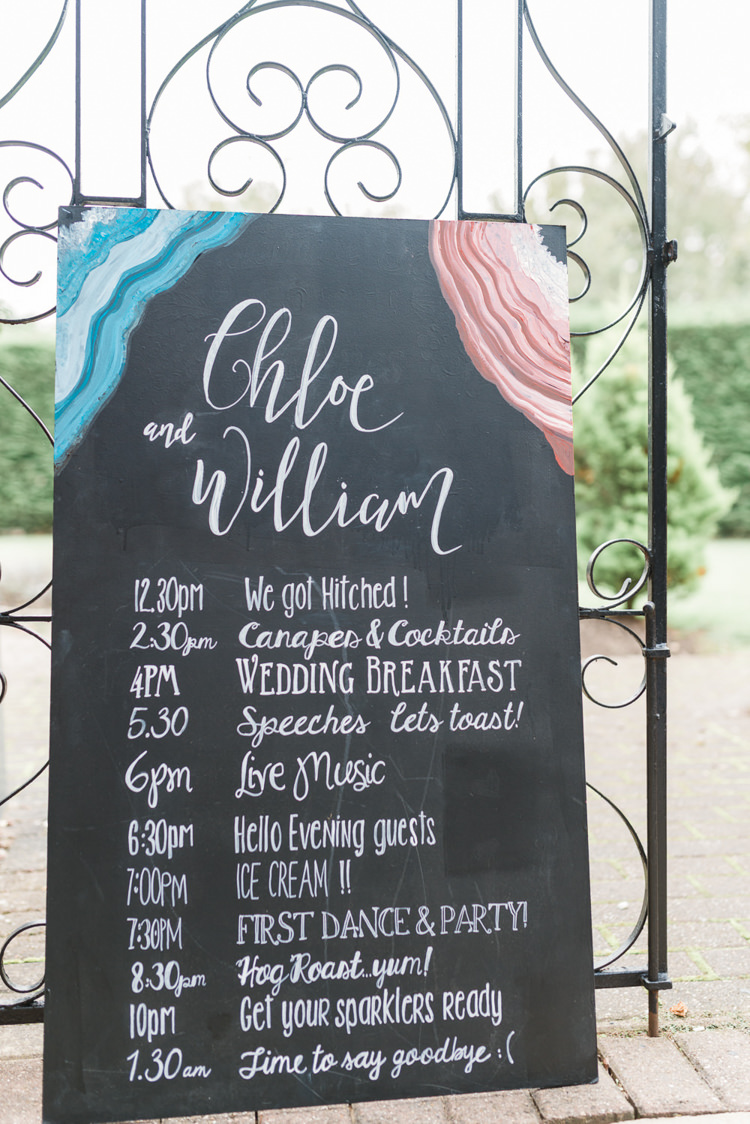 Chloe
and
William
12.30pm We got Hitched!
2:30pm Canapes & Cocktails
4PM WEDDING BREAKFAST
5.30 Speeches lets toast!
6pm Live Music
6:30pm Hello Evening guests
7:00PM ICE CREAM !!
7:30PM FIRST DANCE & PARTY!
8:30pm Hog Roast...yum!
10pm Get your sparklers ready
1.30am Time to say goodbye :(